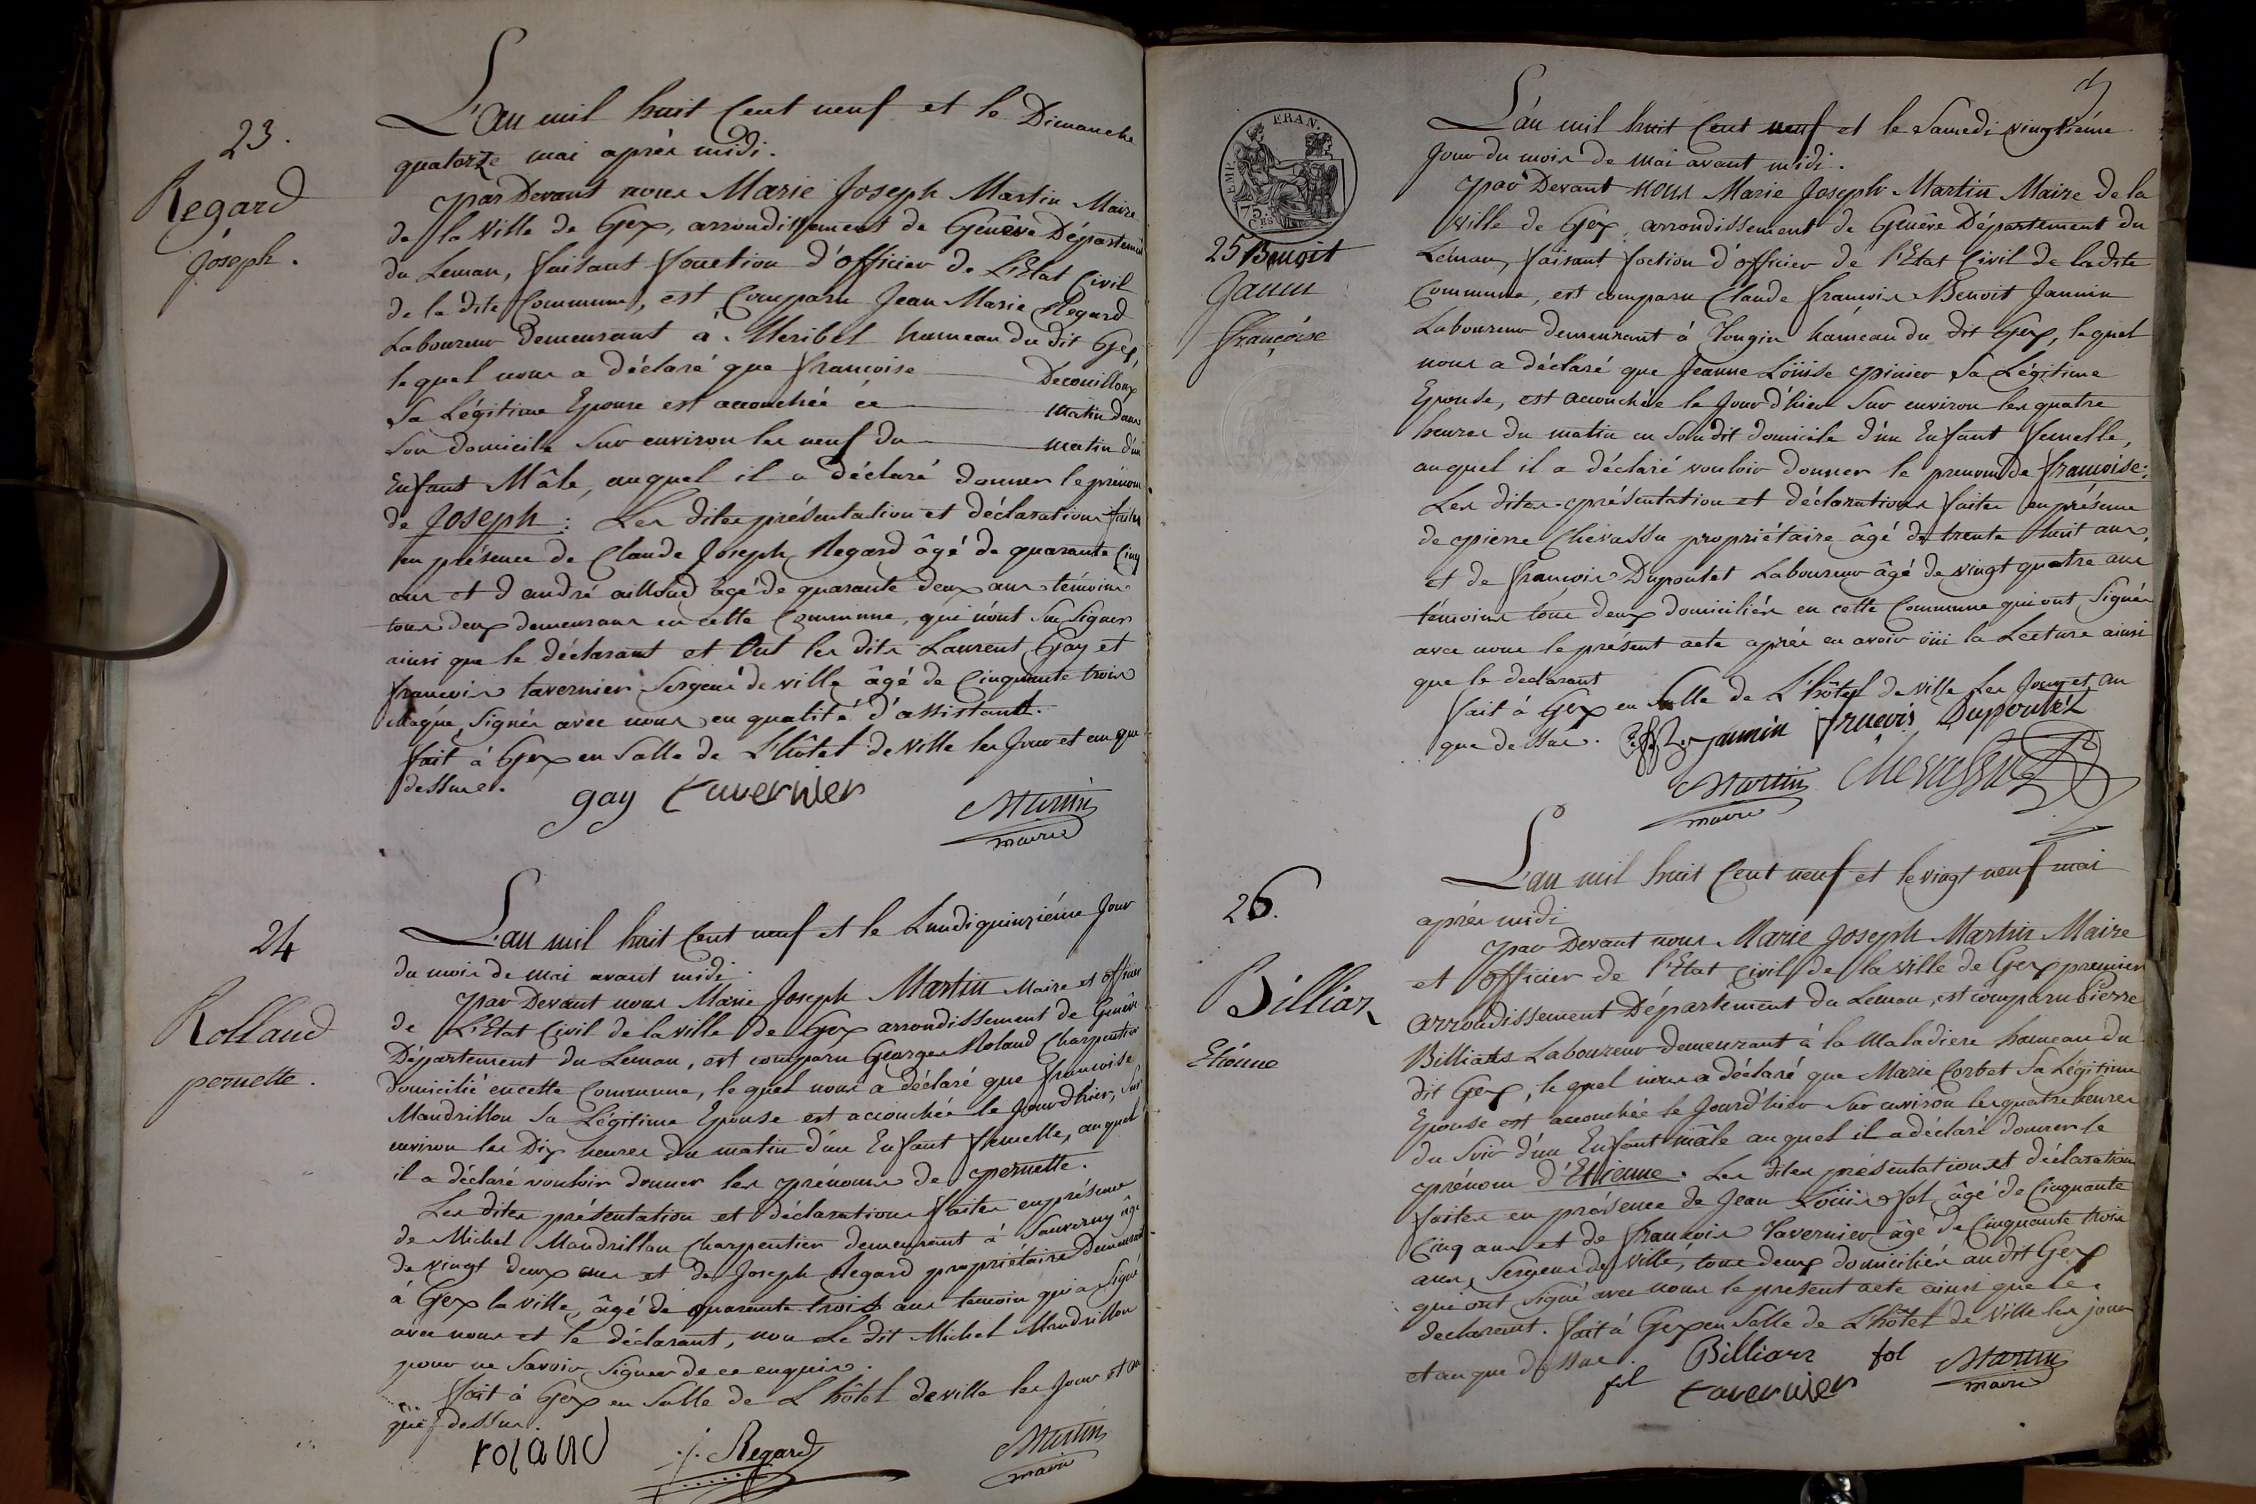 23.
Regard
Joseph.
L'an mil huit Cent neuf et le Dimanche
quatorze mai après midi.
par Devant nous Marie Joseph Martin Maire
de la Ville de Gex, arrondissement de Genêve Département
du Leman, faisant fonction d'officier de L'Etat Civil
de la dite Commune, est Comparu Jean Marie Regard
Laboureur Demeurant à Meribel hameau du dit Gex,
lequel nous a déclaré que françoise Decouilloux
Sa Légitime Epouse est accouchée ce matin dans
Son domicile Sur environ les neuf du matin d'un
Enfant Mâle, auquel il a déclaré donner le prénom
de Joseph: Les dites présentation et déclaration faites
en présence de Claude Joseph Regard âgé de quarante Cinq
ans et d'andré ailloud âgé de quarante deux ans témoins
tous deux demeurans en cette Commune, qui n'ont Su Signer
ainsi que le déclarant et Ont les dits Laurent Gay et
françois tavernier Sergent de ville âgé de Cinquante trois
chaque, Signés avec nous en qualité d'assistant.
fait à Gex en Salle de L'hôtel de Ville les Jour et an que
dessus.
gay tavernier Martin
maire
24
Rolland
pernette.
L'an mil huit Cent neuf et le Lundi quinzième Jour
du mois de mai avant midi.
par Devant nous Marie Joseph Martin Maire et officier
de L'Etat Civil de la ville de Gex arrondissement de Genêve
Département du Leman, est comparu George Roland Charpentier
domicilié en cette Commune, lequel nous a déclaré que françoise
Mandrillon Sa Légitime Epouse est accouchée le Jour d'hier, Sur
environ les Dix heures du matin d'un Enfant femelle, auquel
il a déclaré vouloir donner les prénoms de pernette.
Les dites présentation et déclaration faites en présence
de Michel Mandrillon Charpentier demeurant à Sauverny âgé
de vingt deux ans et de Joseph Regard propriétaire demeurant
à Gex la ville, âgé de quarante trois ans temoin qui a Signé
avec nous et le déclarant, non Le dit Michel Mandrillon
pour ne Savoir Signer de ce enquis.
fait à Gex en Salle de L'hôtel de ville les Jour et an
que dessus.
roland j. Regard Martin
maire
EMP. FRAN.
75
25 Benoit
Janin
françoise
L'an mil huit Cent neuf et le Samedi vingtième
Jour du mois de Mai avant midi.
par Devant nous Marie Joseph Martin Maire de la
ville de Gex, arrondissement de Genêve Département du
Léman, faisant foction d'officier de l'Etat Civil de ladite
Commune, est comparu Claude françois Benoit Jannin
Laboureur demeurant à Tougin hameau du dit Gex, lequel
nous a déclaré que Jeanne Loüise pinier Sa Légitime
Epouse, est accouchée le Jour d'hier Sur environ les quatre
heures du matin en Son dit domicile d'un Enfant femelle,
auquel il a déclaré vouloir donner le prenom de françoise:
Les dites présentation et déclaration faites en présence
de pierre Chevassu propriétaire âgé de trente huit ans,
et de françois Dupontet Laboureur âgé de vingt quatre ans
témoins tous deux domiciliés en cette Commune qui ont Signés
avec nous le présent acte après en avoir oüi la Lecture ainsi
que le declarant
fait à Gex en Salle de L'hôtel de ville Les Jour et an
que dessus. janin françois Dupontet
Martin Chevassu
maire
26.
Billiar
Etienne
L'an mil huit Cent neuf et le vingt neuf mai
après midi
par Devant nous Marie Joseph Martin Maire
et officier de l'Etat civil de la ville de Gex premier
arrondissement Département du Leman, est comparu Pierre
Billiard Laboureur demeurant à la Maladiere hameau du
dit Gex, lequel nous a déclaré que Marie Corbet Sa Légitime
Epouse est accouchée le Jour d'hier Sur environ les quatre heures
du Soir d'un Enfant mâle auquel il a déclaré donner le
prénom d'Etienne. Les dites présentation et déclaration
faites en présence de Jean Loüis fol, âgé de Cinquante
Cinq ans et de françois Tavernier âgé de Cinquante trois
ans, Sergens de ville, tous deux domiciliés au dit Gex
qui ont signé avec nous le present acte ainsi que le
declarant. fait à Gex en Salle de L'hôtel de Ville les jour
et an que dessus. Billiarr fol Martin
fol tavernier maire